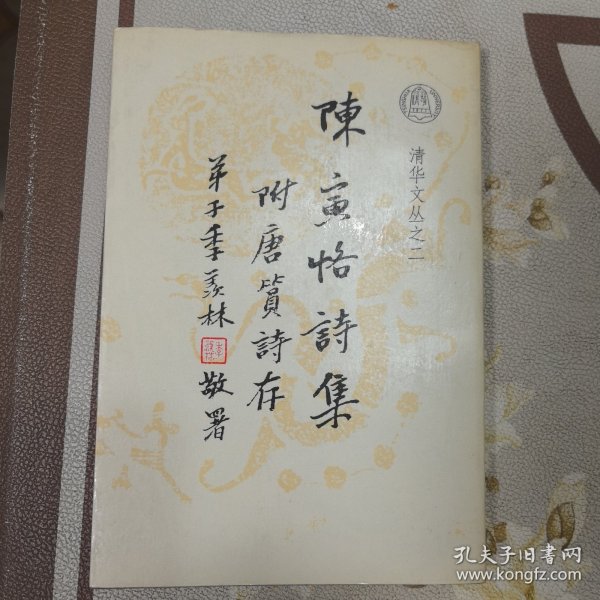 清华文丛之二
陳寅恪詩集
附唐篔詩存
弟子季羡林
敬署
孔夫子旧书网
www.kongfz.com